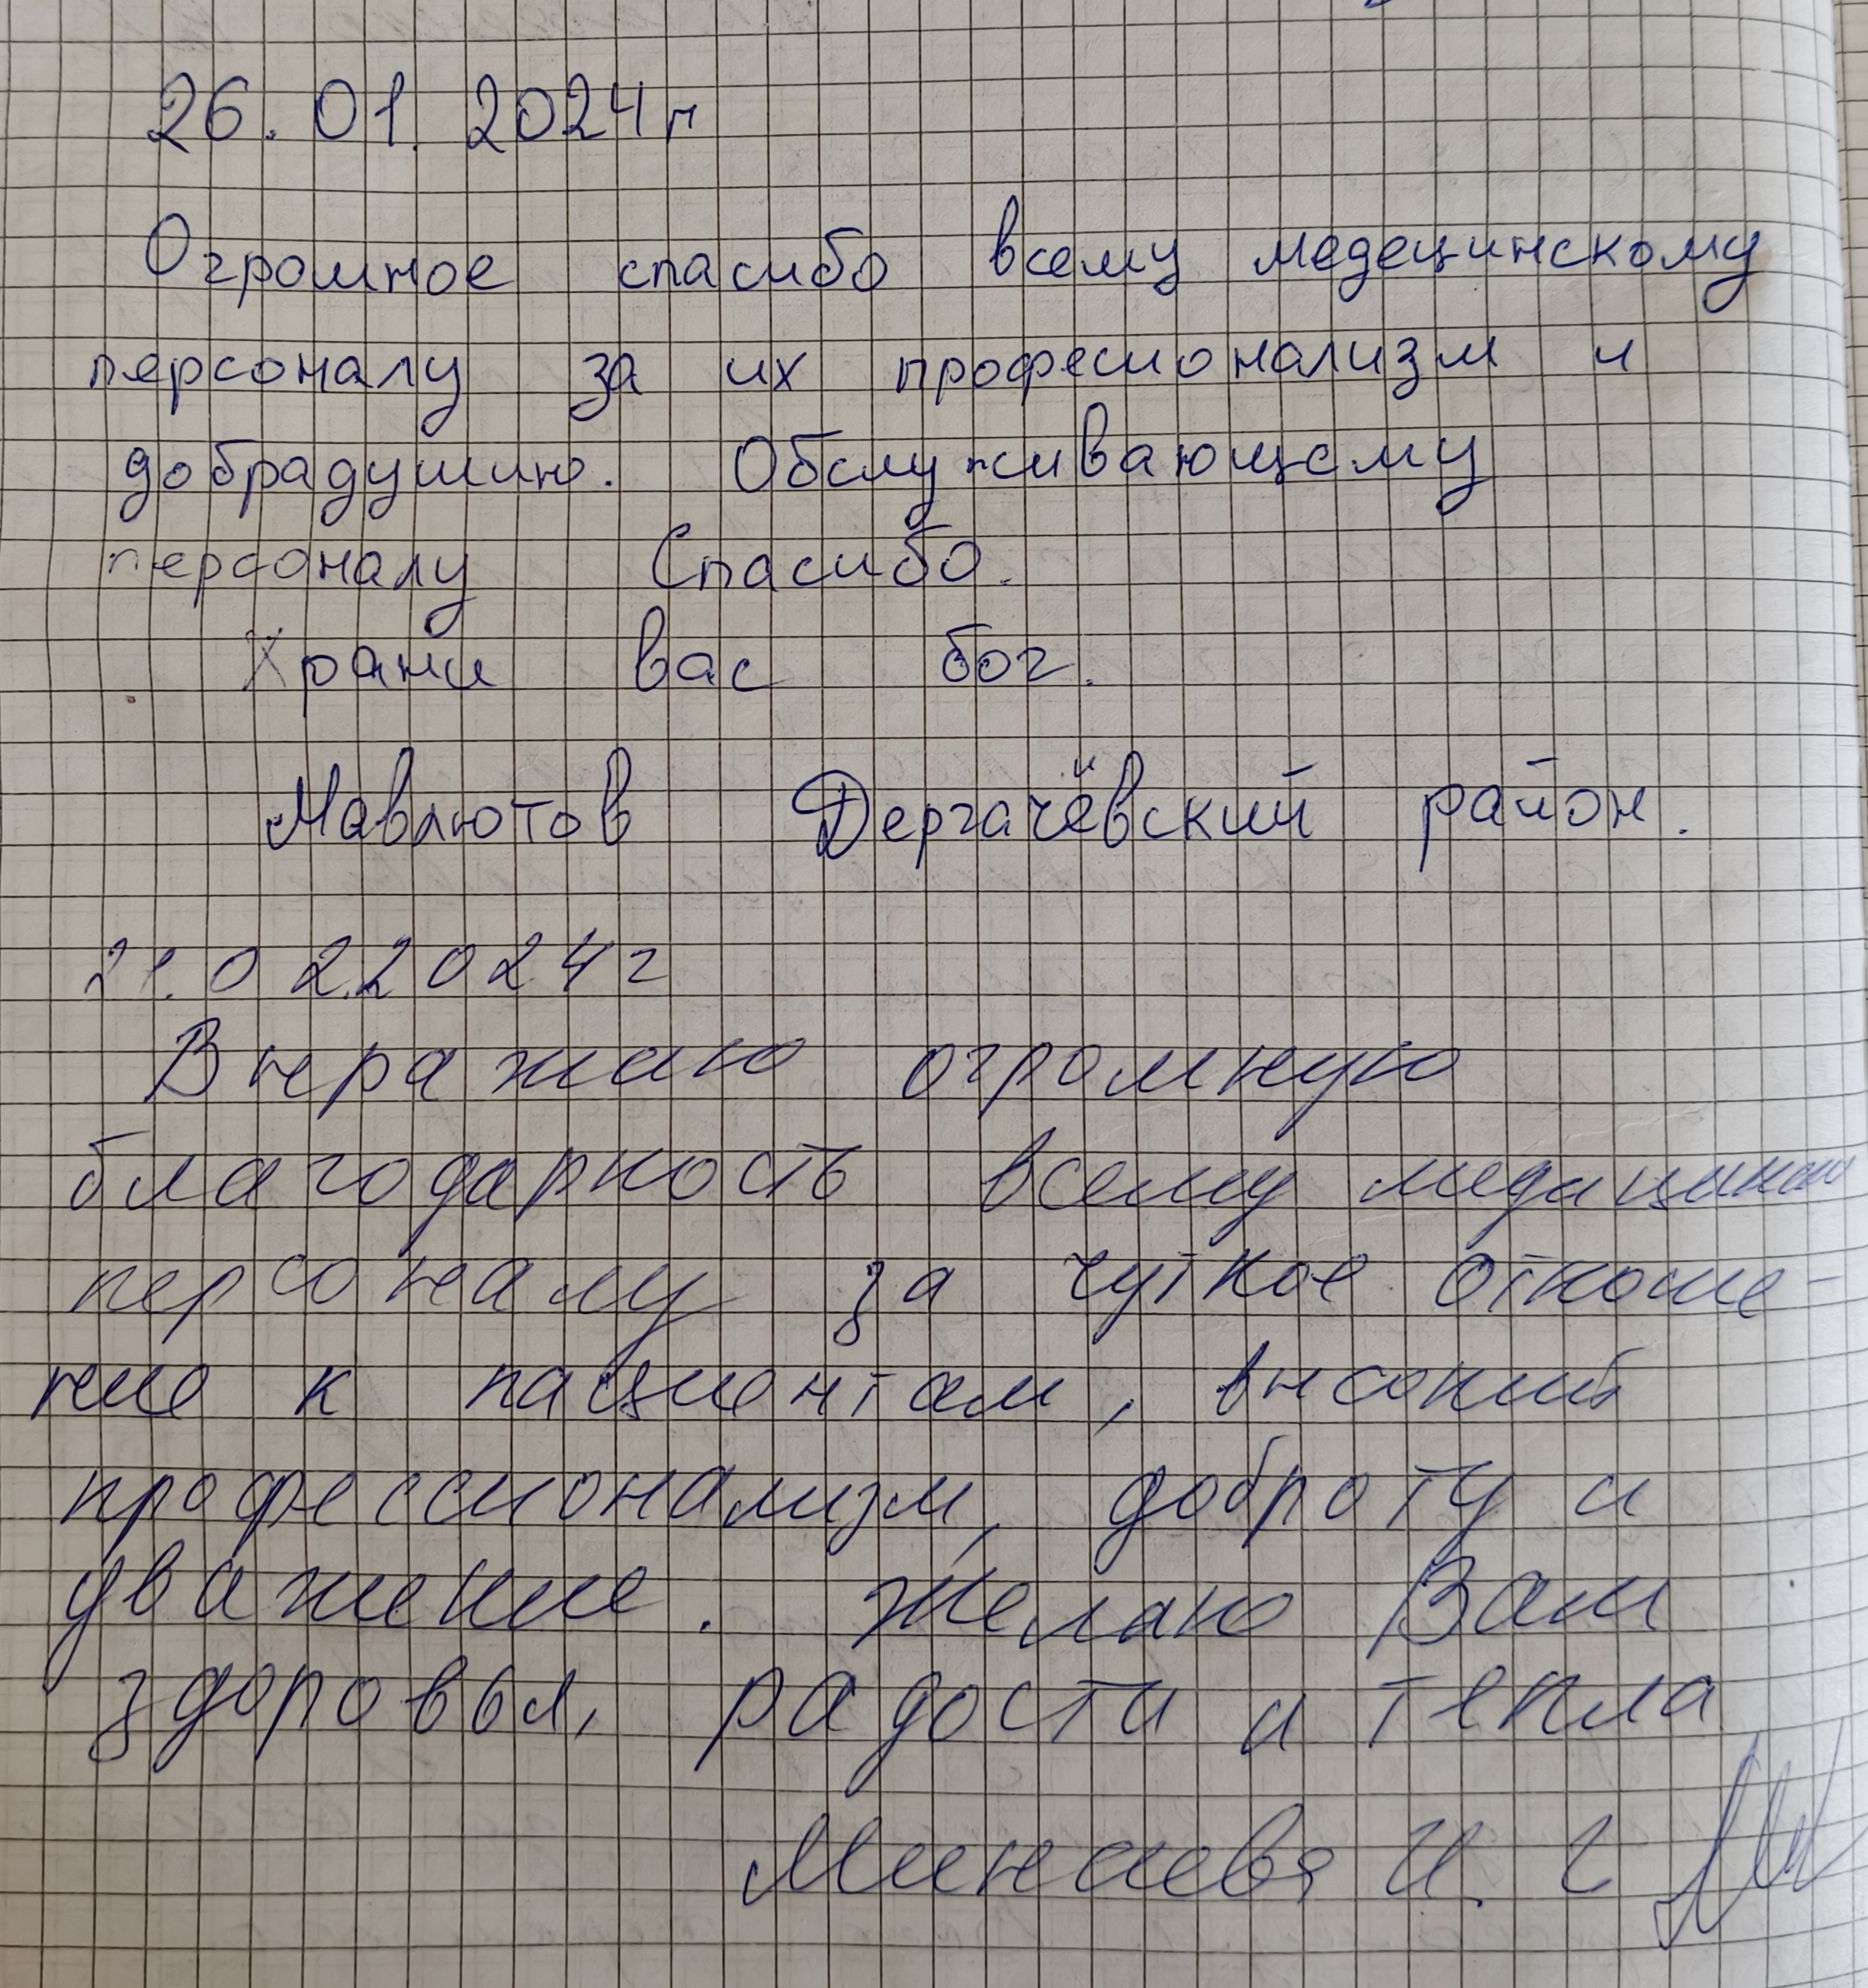 26.01.2024г
Огромное спасибо всему медецинскому
персоналу за их професионализм и
добрадушию. Обслуживающему
персоналу Спасибо.
Храни вас бог.
Мавлютов Дергачёвский район.
21.02.2024г
Выражаю огромную
благодарность всему
персоналу за чуткое отноше-
ние к пациентам, высокий
профессионализм, доброту и
уважение. Желаю Вам
здоровья, радости и тепла
Минаева И. Г